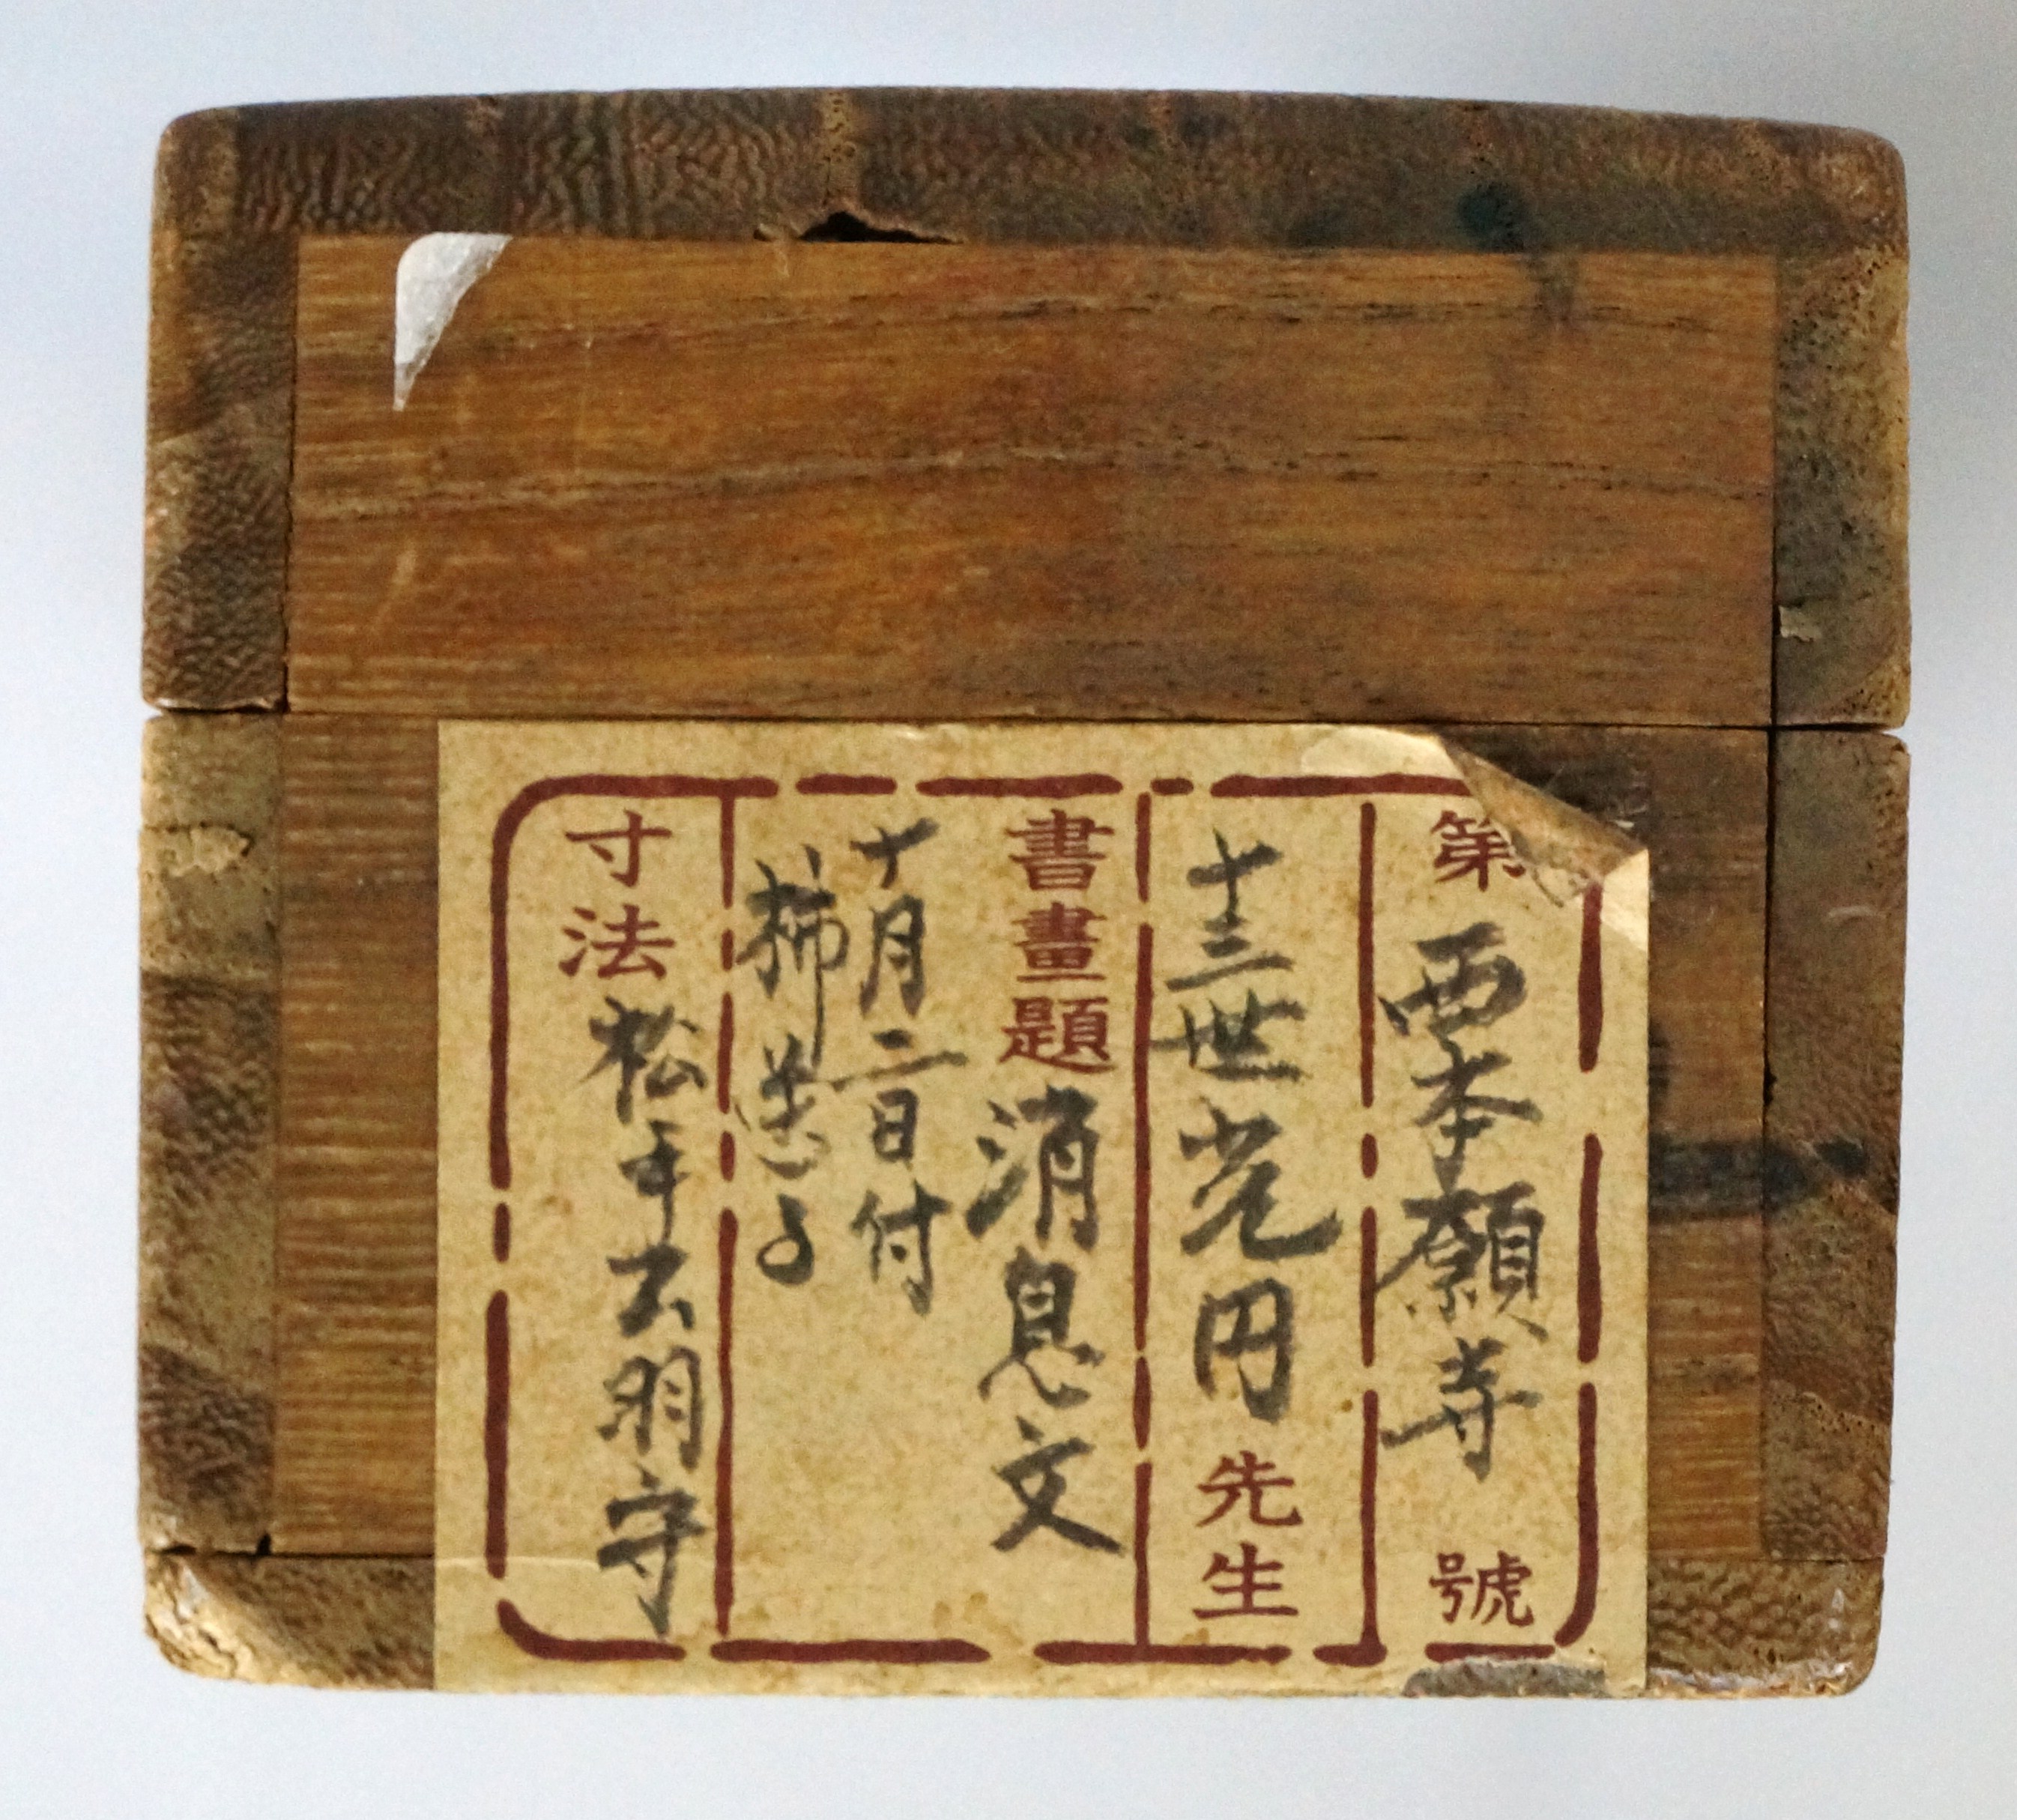 第 西本願寺 號
十三世光円先生
書畫題 消息文
十月二日付
柿送よ
寸法 松平出羽守